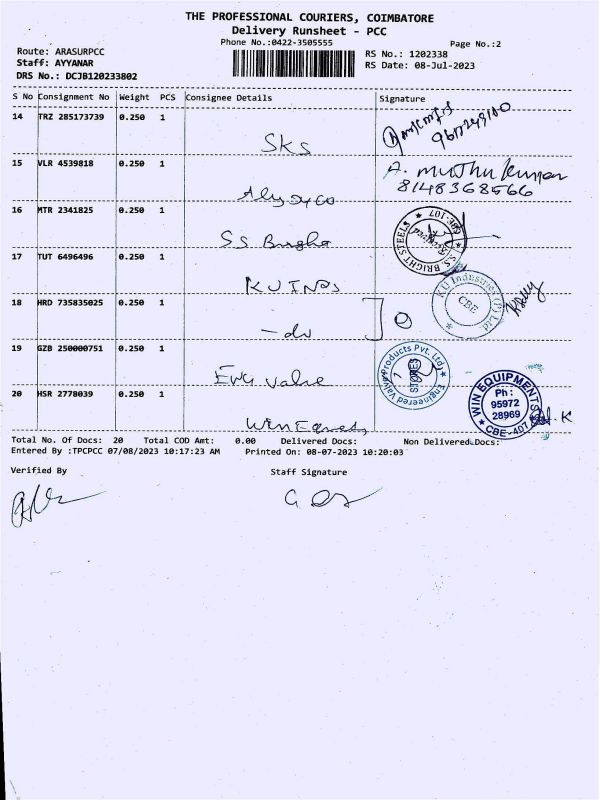 THE PROFESSIONAL COURIERS, COIMBATORE
Delivery Runsheet - PCC
Phone No.:0422-3505555
Page No.:2
Route: ARASURPCC
Staff: AYYANAR
DRS No.: DCJB120233802
RS No.: 1202338
RS Date: 08-Jul-2023
S No Consignment No Weight PCS Consignee Details Signature
14 TRZ 285173739 0.250 1 SKS
15 VLR 4539818 0.250 1
A. Muthu Kumar
8148368566
16 MTR 2341825 0.250 1 S.S. Bright
S.S. BRIGHT STEELS
CBE-107
17 TUT 6496496 0.250 1 KU INDS
KU Industries (P) Ltd
CBE
18 HRD 735835025 0.250 1 - do
19 GZB 250000751 0.250 1 Eng Valve
Engineered Valve Products Pvt. Ltd
STORES
20 HSR 2778039 0.250 1 Win
WIN EQUIPMENTS
Ph:
95972
28969
CBE-407
Total No. Of Docs: 20 Total COD Amt: 0.00 Delivered Docs: Non Delivered Docs:
Entered By :TPCPCC 07/08/2023 10:17:23 AM Printed On: 08-07-2023 10:20:03
Verified By Staff Signature